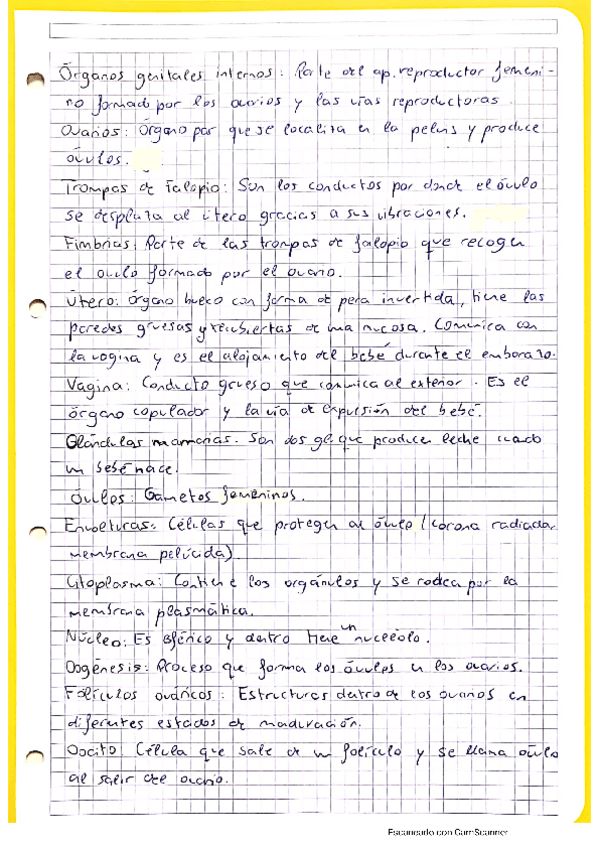 Órganos genitales internos: Parte del ap. reproductor femeni-
no formado por los ovarios y las vías reproductoras.
Ovarios: Órgano par que se localiza en la pelvis y produce
óvulos.
Trompas de Falopio: Son los conductos por donde el óvulo
se desplaza al útero gracias a sus vibraciones.
Fimbrias: Parte de las trompas de falopio que recogen
el óvulo formado por el ovario.
Útero: Órgano hueco con forma de pera invertida, tiene las
paredes gruesas y recubiertas de una mucosa. Comunica con
la vagina y es el alojamiento del bebé durante el embarazo.
Vagina: Conducto grueso que comunica al exterior. Es el
órgano copulador y la vía de expulsión del bebé.
Glándulas mamarias. Son dos gl. que producen leche cuando
un bebé nace.
Óvulos: Gametos femeninos.
Envolturas: Células que protegen al óvulo (corona radiada,
membrana pelúcida).
Citoplasma: Contiene los orgánulos y se rodea por la
membrana plasmática.
Núcleo: Es esférico y dentro tiene un nucléolo.
Oogénesis: Proceso que forma los óvulos en los ovarios.
Folículos ováricos: Estructuras dentro de los ovarios en
diferentes estados de maduración.
Oocito: Célula que sale de un folículo y se llama óvulo
al salir del ovario.
Escaneado con CamScanner